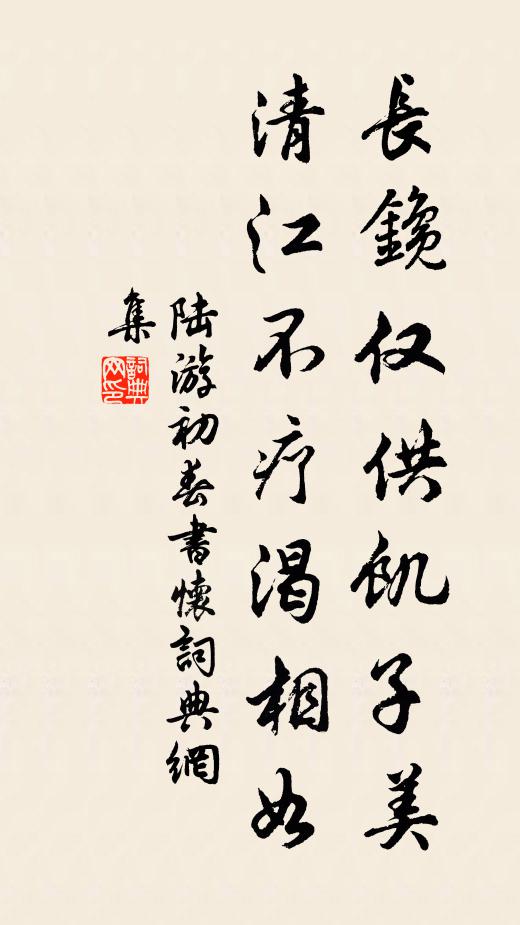 長鑱仅供飢子美
清江不疗渴相如
陆游初春書懷詞典網
集
詞典
网印